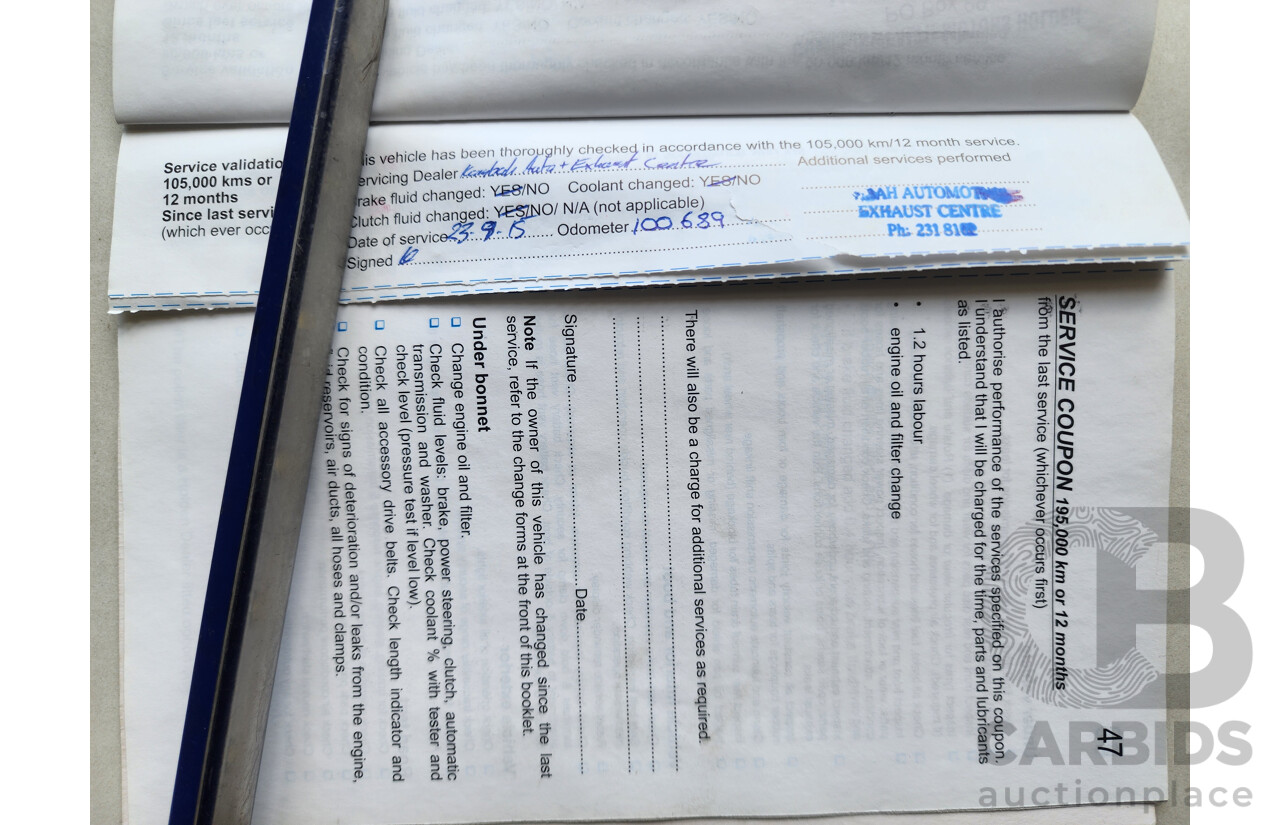 Service validatio
105,000 kms or
12 months
Since last servi
(which ever occ
is vehicle has been thoroughly checked in accordance with the 105,000 km/12 month service.
ervicing Dealer Auto + Exhaust Centre
Additional services performed
rake fluid changed: YES/NO Coolant changed: YES/NO
Clutch fluid changed: YES/NO/ N/A (not applicable)
Date of service 23.9.15 Odometer 100 689
Signed
AH AUTOMOT
EXHAUST CENTRE
Ph: 231 81
SERVICE COUPON 195,000 km or 12 months
from the last service (whichever occurs first)
I authorise performance of the services specified on this coupon.
I understand that I will be charged for the time, parts and lubricants
as listed.
• 1.2 hours labour
• engine oil and filter change
There will also be a charge for additional services as required.
Signature Date
Note If the owner of this vehicle has changed since the last
service, refer to the change forms at the front of this booklet.
Under bonnet
Change engine oil and filter.
Check fluid levels: brake, power steering, clutch, automatic
transmission and washer. Check coolant % with tester and
check level (pressure test if level low).
Check all accessory drive belts. Check length indicator and
condition.
Check for signs of deterioration and/or leaks from the engine,
reservoirs, air ducts, all hoses and clamps.
47
CARBIDS
auctionplace